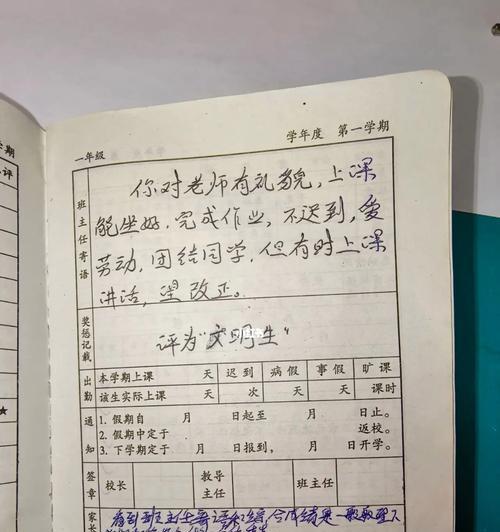 学期
评
一年级
学年度 第一学期
班主任寄语
你对老师有礼貌，上课
能坐好，完成作业，不迟到，爱
劳动，团结同学，但有时上课
讲话，望改正。
奖惩记载
评为“文明生”
出勤
本学期上课 天 迟到 病假 事假 旷课
该生实际上课 天 次 天 天 课时
通知
1. 假期自 月 日起至 月 日止。
2. 假期中定于 返校。
3. 下学期定于 月 日报到， 月 日开学。
签章
校长
教导主任
班主任
家长
看到班主任寄语和